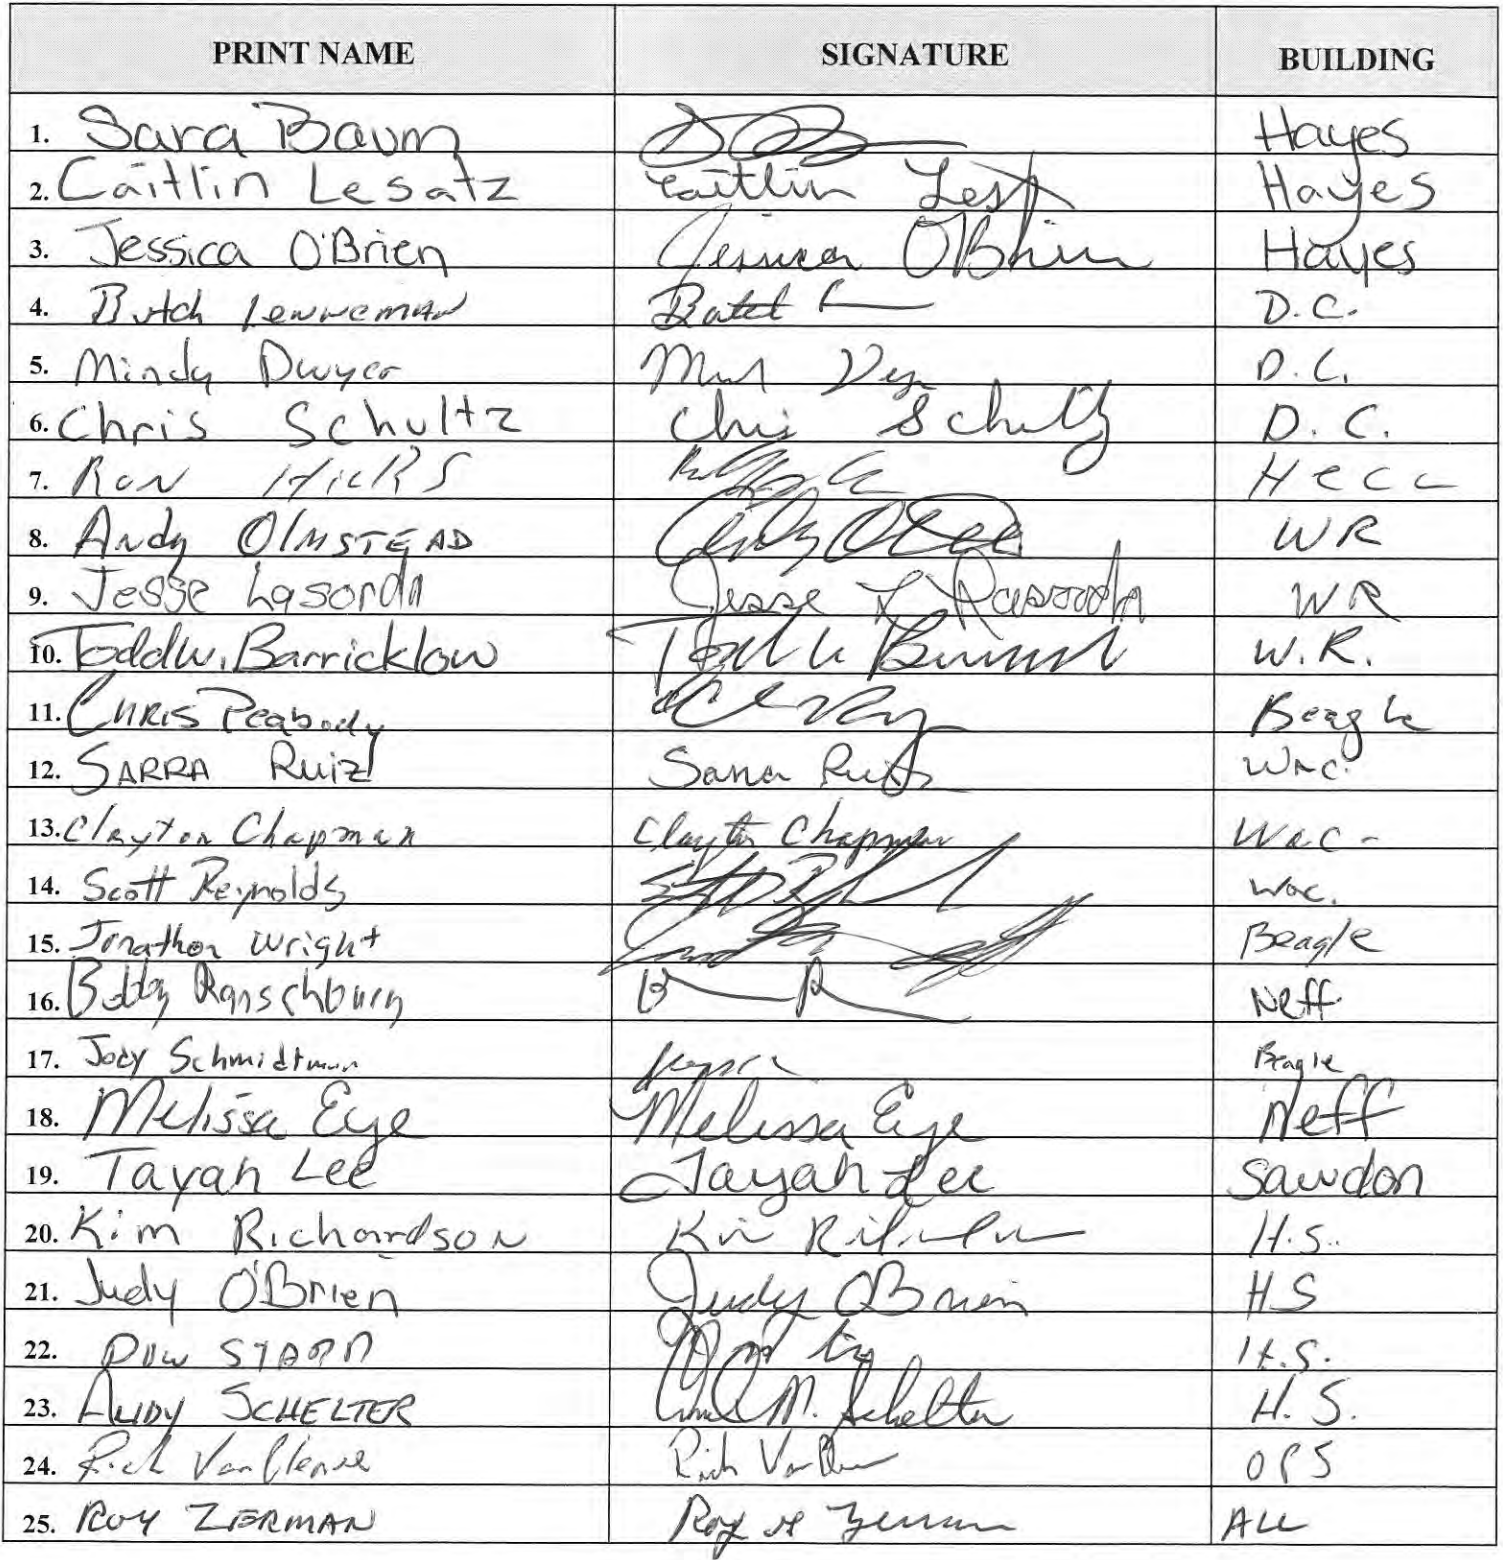 PRINT NAME SIGNATURE BUILDING
1. Sara Baum Hayes
2. Caitlin Lesatz Caitlin Hayes
3. Jessica O'Brien Jessica O'Brien Hayes
4. Butch Lenneman D.C.
5. Mindy Dwyer D.C.
6. Chris Schultz Chris Schultz D.C.
7. Ron Hicks Hecc
8. Andy OlmSTEAD WR
9. Jesse Lasorda Jesse WR
10. Todd W. Barricklow W.R.
11. CHRIS Peabody Beagle
12. SARRA Ruiz Sarra Ruiz Wac.
13. Clayton Chapman Clayton Chapman Wac-
14. Scott Reynolds Wac.
15. Jonathon Wright Beagle
16. Bobby Ranschburg Neff
17. Jody Schmidtman Beagle
18. Melissa Eye Melissa Eye Neff
19. Tayah Lee Tayah Lee Sawdon
20. Kim Richardson Kim H.S.
21. Judy O'Brien Judy O'Brien HS
22. H.S.
23. ANDY SCHELTER M. Schelter H.S.
24. Rich Rich OPS
25. ROY ZERMAN Roy Zerman ALL